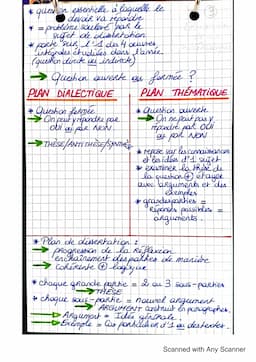 * question essentielle à laquelle le
devoir va répondre
* = problème soulevé par le
sujet de dissertation
* porte sur l'1 des 4 œuvres
intégrales étudiées dans l'année.
(question directe ou indirecte)
→ Question ouverte ou fermée ?
PLAN DIALECTIQUE
* Question fermée
→ On peut répondre par
OUI ou par NON
→ THÈSE/ANTITHÈSE/SYNTHÈSE
PLAN THÉMATIQUE
* Question ouverte
→ On ne peut pas y
répondre par OUI
ou par NON
* repose sur les connaissances
et les idées d'1 sujet
* examiner la thèse de
la question ⊕ étayer
avec arguments et des
exemples
* grandes parties =
réponses possibles =
arguments.
* Plan de dissertation :
→ progression de la réflexion
→ enchaînement des parties de manière
cohérente ⊕ logique
* chaque grande partie = 2 ou 3 sous-parties
→ THÈSE
* chaque sous-partie = nouvel argument
→ ARGUMENT construit en paragraphes.
→ Argument = Idée générale.
→ Exemple = Cas particulier d'1 ou des textes.
Scanned with Any Scanner